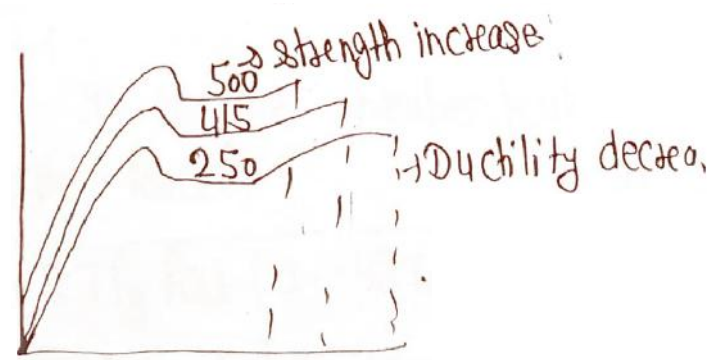 500 → strength increase
415
250
→Ductility decrea.